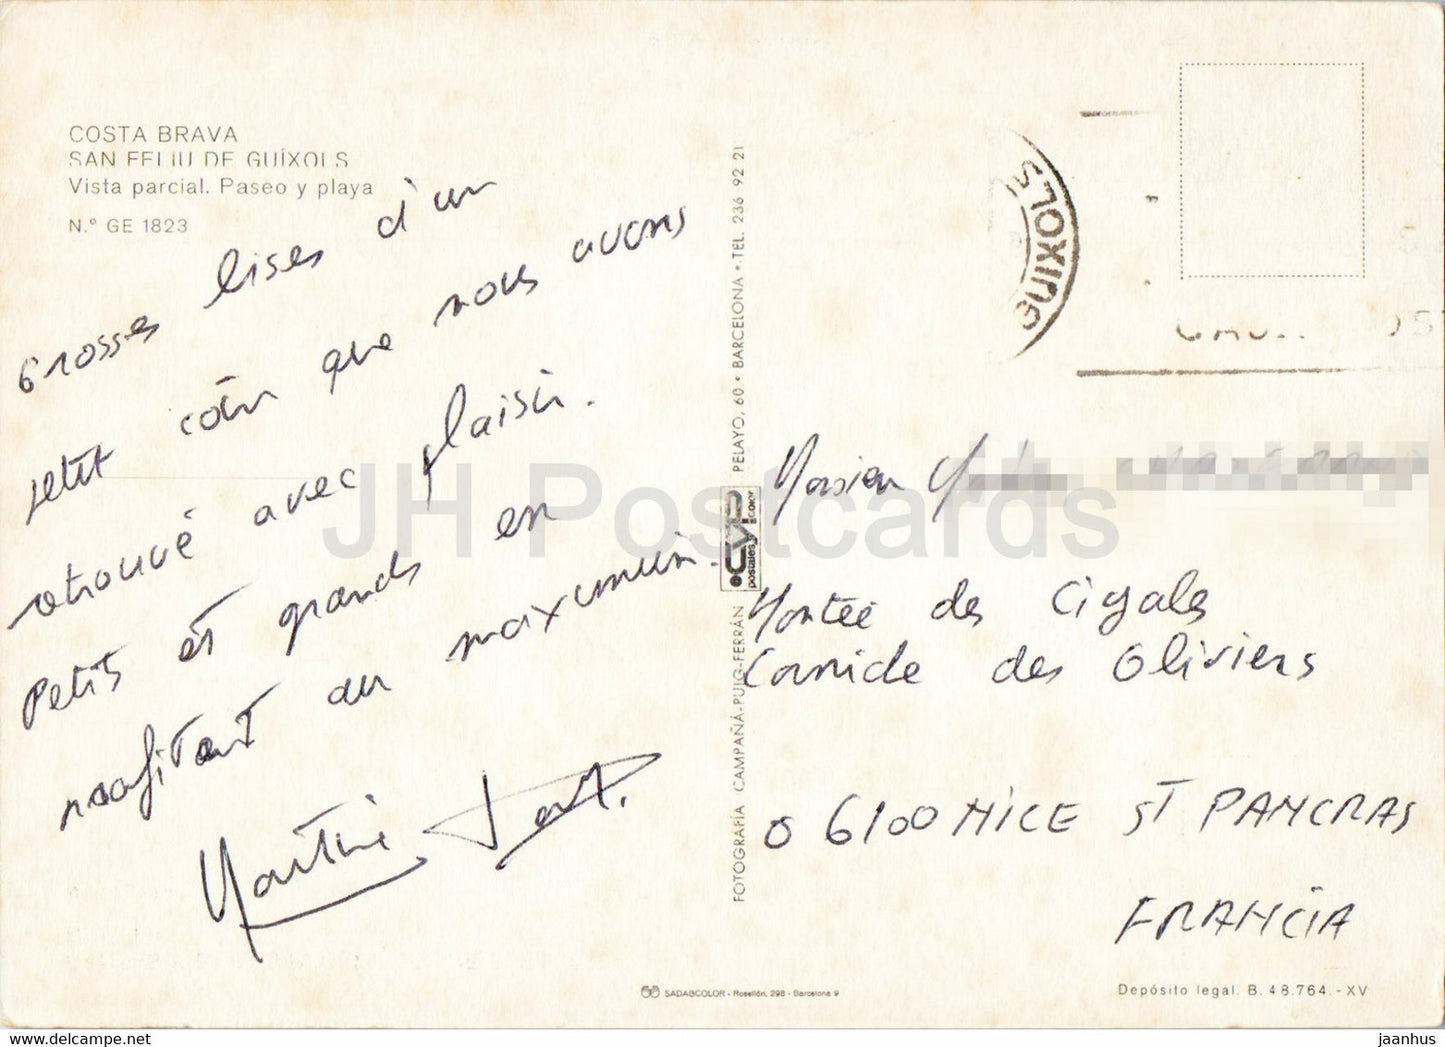 COSTA BRAVA
SAN FELIU DE GUÍXOLS
Vista parcial. Paseo y playa
N.° GE 1823
Grosses bises d'un
petit coin que nous avons
retrouvé avec plaisir.
Petits et grands en
profitent au maximum.
Martine
FOTOGRAFÍA CAMPAÑÁ-PUIG-FERRÁN
postales CyP color
PELAYO, 60 • BARCELONA • TEL. 236 92 21
GUIXOLS
Monsieur
Montée des Cigales
Corniche des Oliviers
06100 NICE ST PANCRAS
FRANCIA
SADAGCOLOR - Rosellón, 298 - Barcelona 9
Depósito legal. B. 48.764. - XV
JH Postcards
www.delcampe.net
jaanhus